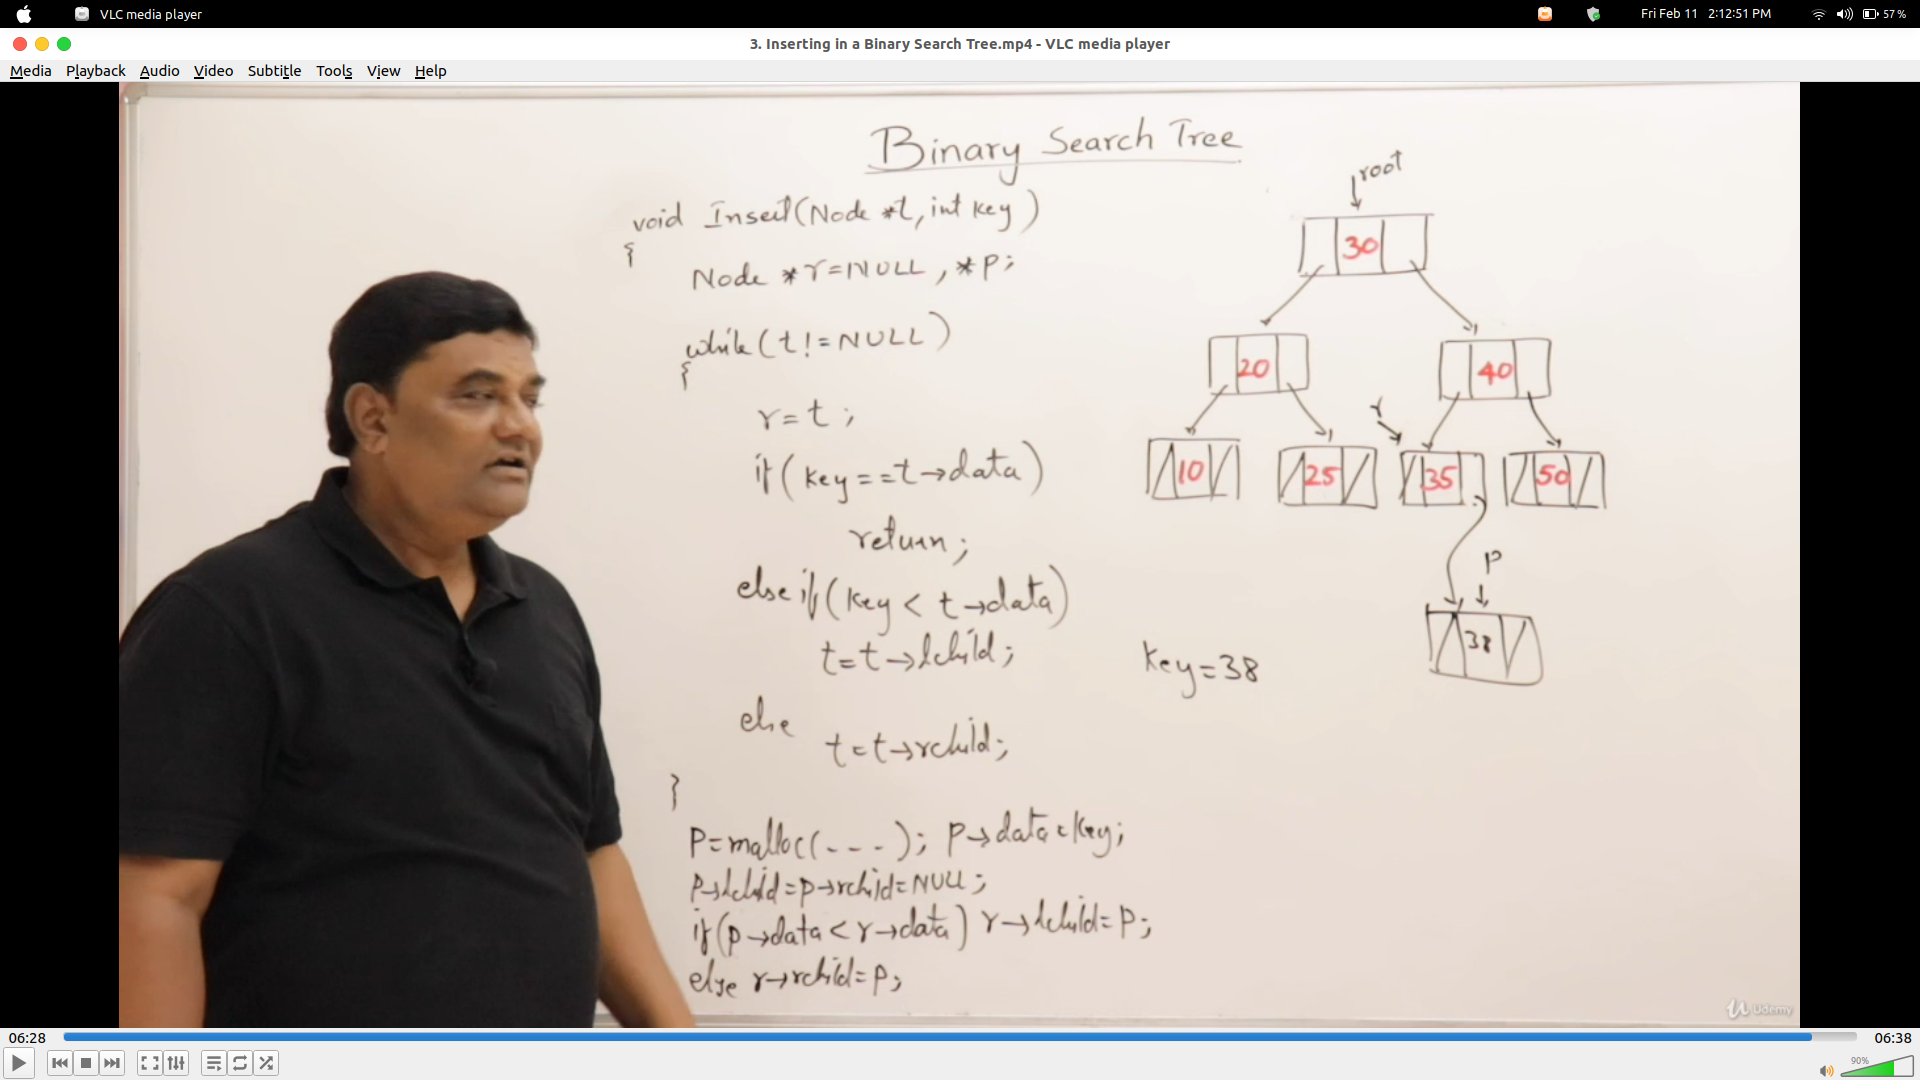 VLC media player
Fri Feb 11 2:12:51 PM
57 %
3. Inserting in a Binary Search Tree.mp4 - VLC media player
Media Playback Audio Video Subtitle Tools View Help
Binary Search Tree
void Insert(Node *t, int key)
{
Node *r=NULL, *p;
while(t!=NULL)
{
r=t;
if(key==t→data)
return;
else if(key < t→data)
t=t→lchild;
else
t=t→rchild;
}
P=malloc(---); p→data=key;
p→lchild=p→rchild=NULL;
if(p→data < r→data) r→lchild=p;
else r→rchild=p;
root
30
20
40
r
10
25
35
50
p
38
key=38
Udemy
06:28
06:38
90%